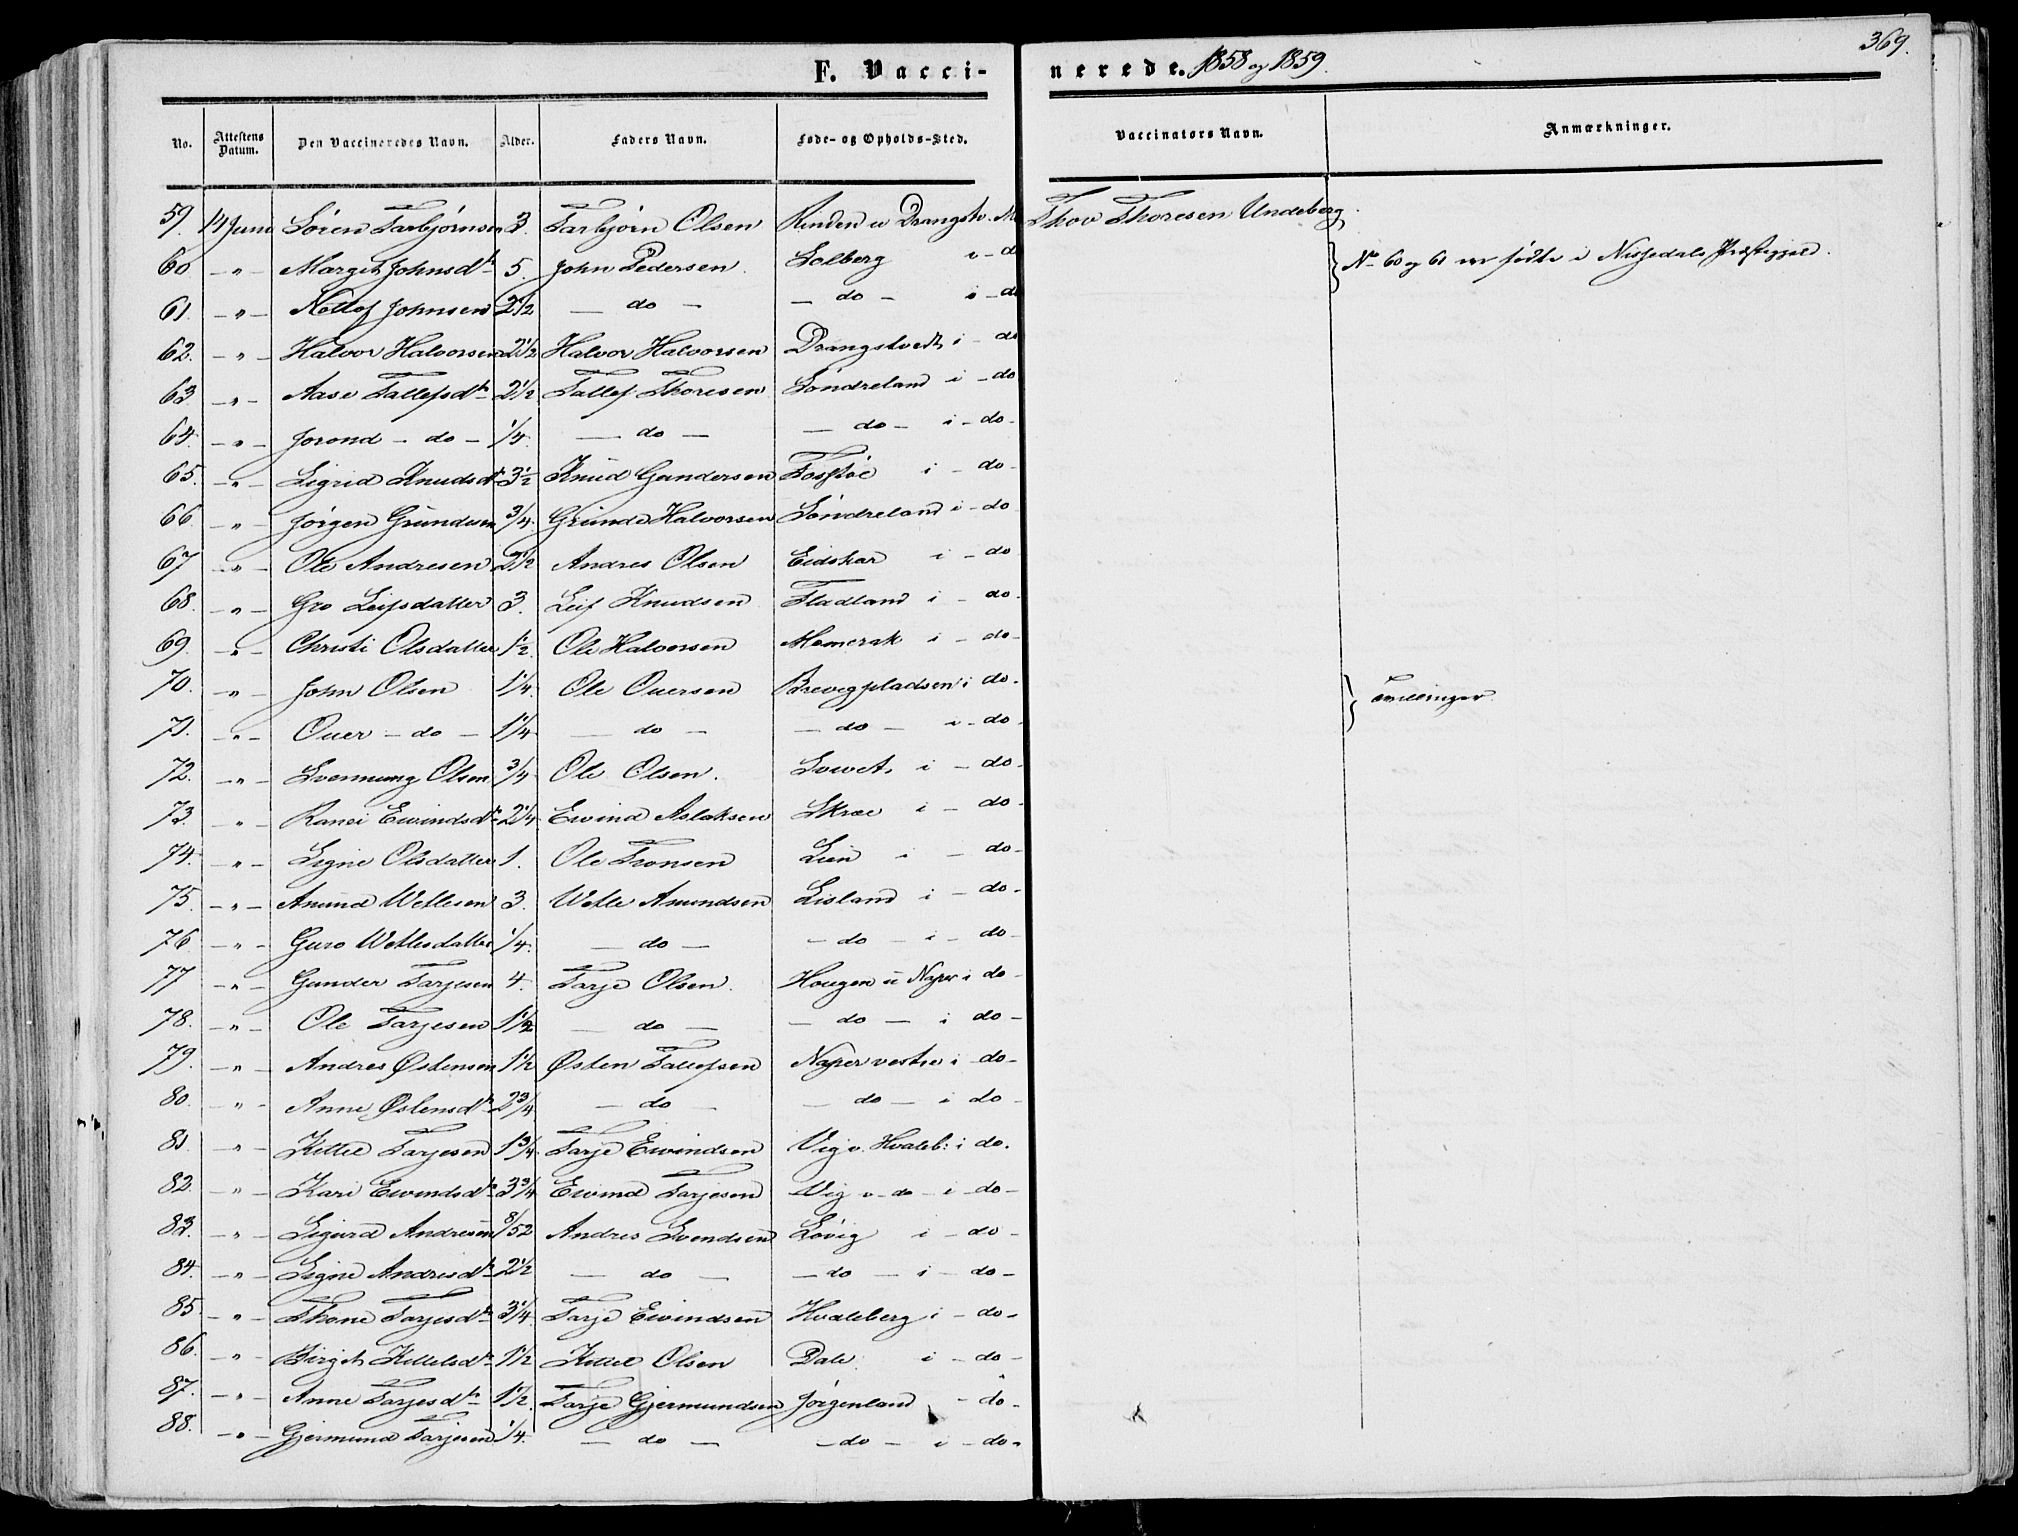 369.
F. Vacci-nerede. 1858 og 1859.
No. Attestens Datum. Den Vaccineredes Navn. Alder. Faders Navn. Føde- og Opholds-Sted. Vaccinatørs Navn. Anmærkninger.
59. 14 Juni Søren Tarbjørnsen 3. Tarbjørn Olsen Rinden u Drangstv. Thov Thoresen Undeberg.
60 -"- Margit Johnsdtr 5. John Pedersen. Solberg i - do } No 60 og 61 ere fødte i Nissedals Præstegjeld.
61. -"- Nottof Johnsen 2 1/2 - do - - do - i - do
62. -"- Halvor Halvorsen 2 1/2 Halvor Halvorsen Drangstvedt i - do
63 -"- Aase Tallefsdtr 2 1/2 Tallef Thoresen Søndreland i - do
64. -"- Jorond - do - 1/4. - do - - do - i - do -
65. -"- Sigrid Knudsdtr 3 1/2 Knud Gundersen Fosstøe i - do -
66. -"- Jørgen Grundesen 3/4. Grunde Halvorsen Søndreland i - do
67 -"- Ole Andresen 2 1/2 Andres Olsen Eidskar i - do
68. -"- Gro Leifsdatter 3. Leif Knudsen Fladland i - do.
69. -"- Christi Olsdatter 1 1/2. Ole Halvorsen Momerak i - do -
70. -"- John Olsen 1 1/4. Ole Ouersen Brevigpladsen i do. } Tvillinger.
71. -"- Ouer - do - 1 1/4 - do - - do - i - do -
72. -"- Svennung Olsen 3/4 Ole Olsen. i - do -
73. -"- Ranei Eivindsdtr 2 1/4. Eivind Aslaksen Skree i - do -
74. -"- Signe Olsdatter 1. Ole Tronsen Lien i - do -
75. -"- Amund Wetlesen 3. Wetle Amundsen Lisland i - do -
76 -"- Guro Wetlesdatter 1/4. - do - - do - i - do -
77 -"- Gunder Tarjesen 4. Tarje Olsen. Hougen u Naper i do -
78. -"- Ole Tarjesen 1 1/2 - do - - do - i do -
79. -"- Andres Østensen 1 1/2 Østen Tallefsen Naper vestre i - do -
80. -"- Anne Østensdtr 2 3/4 - do - - do - i do -
81 -"- Kittil Tarjesen 1 3/4. Tarje Eivindsen Vig v. Hvaleb: i do.
82. -"- Kari Eivindsdtr 3 3/4 Eivind Tarjesen Vig v - do - i - do -
83. -"- Sigurd Andresen 8/52 Andres Svendsen Løvig i - do -
84. -"- Signe Andresdtr 2 1/2 - do - - do - i - do -
85. -"- Thone Tarjesdtr 3 1/4. Tarje Eivindsen Hvaleberg i - do -
86. -"- Birgit Kittelsdtr 1 1/2 Kittil Olsen Dale. i - do -
87. -"- Anne Tarjesdtr 1 1/2. Tarje Gjermundsen Jørgenland - do -
88. -"- Gjermund Tarjesen 1/4. - do - - do - i - do -